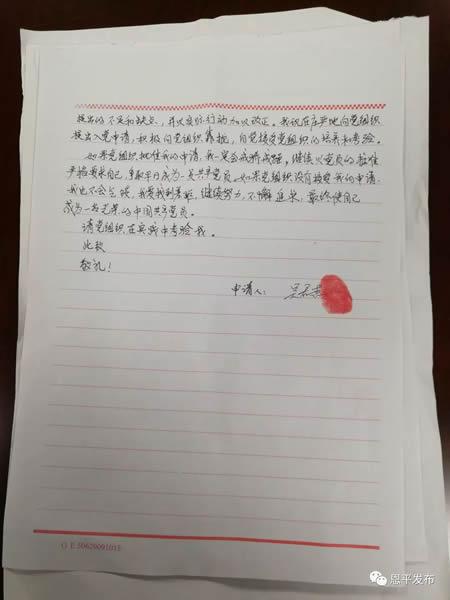 提出的不足和缺点，并以实际行动加以改正。我现在庄严地向党组织
提出入党申请，积极向党组织靠拢，自觉接受党组织的培养和考验。
如果党组织批准我的申请，我一定会戒骄戒躁，继续以党员的标准
严格要求自己，争取早日成为一名共产党员。如果党组织没有接受我的申请，
我也不会气馁，我要找到差距，继续努力，不懈追求，最终使自己
成为一名光荣的中国共产党员。
请党组织在实践中考验我。
此致
敬礼！
申请人：吴
G E 50620091015
恩平发布